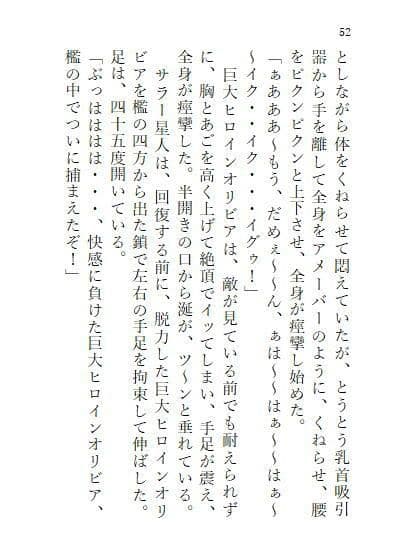 52
としながら体をくねらせて悶えていたが、とうとう乳首吸引
器から手を離して全身をアメーバーのように、くねらせ、腰
をビクンビクンと上下させ、全身が痙攣し始めた。
「ぁあああ～もう、だめぇ～～ん、ぁは～～はぁ～～はぁ～
～イク・・イク・・・イグゥ！」
巨大ヒロインオリビアは、敵が見ている前でも耐えられず
に、胸とあごを高く上げて絶頂でイッてしまい、手足が震え、
全身が痙攣した。半開きの口から涎が、ツ～ンと垂れている。
サラー星人は、回復する前に、脱力した巨大ヒロインオリ
ビアを檻の四方から出た鎖で左右の手足を拘束して伸ばした。
足は、四十五度開いている。
「ぶっはははは・・・、快感に負けた巨大ヒロインオリビア、
檻の中でついに捕まえたぞ！」